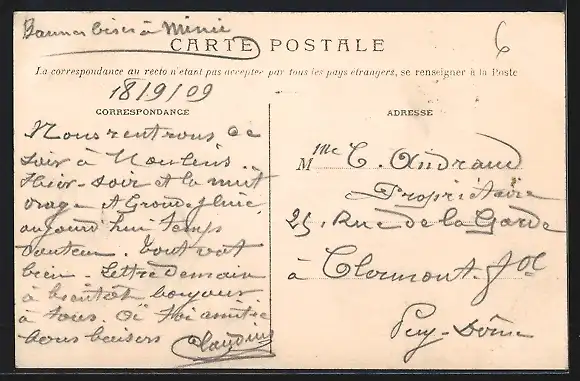 Bonnes bises à Mimie
CARTE POSTALE
6
La correspondance au recto n'étant pas acceptée par tous les pays étrangers, se renseigner à la Poste
18/9/09
CORRESPONDANCE
Nous rentrons ce
soir à Moulins.
Hier-soir et la nuit
orage et Grande pluie,
aujourd'hui temps
douteux. Tout va
bien. Lettre Demain
à bientôt bonjour
à tous. à toi amitié
bons baisers Claudius
ADRESSE
Mme C. Andraud
Propriétaire
25, Rue de la Garde
à Clermont-fd
Puy-Dôme